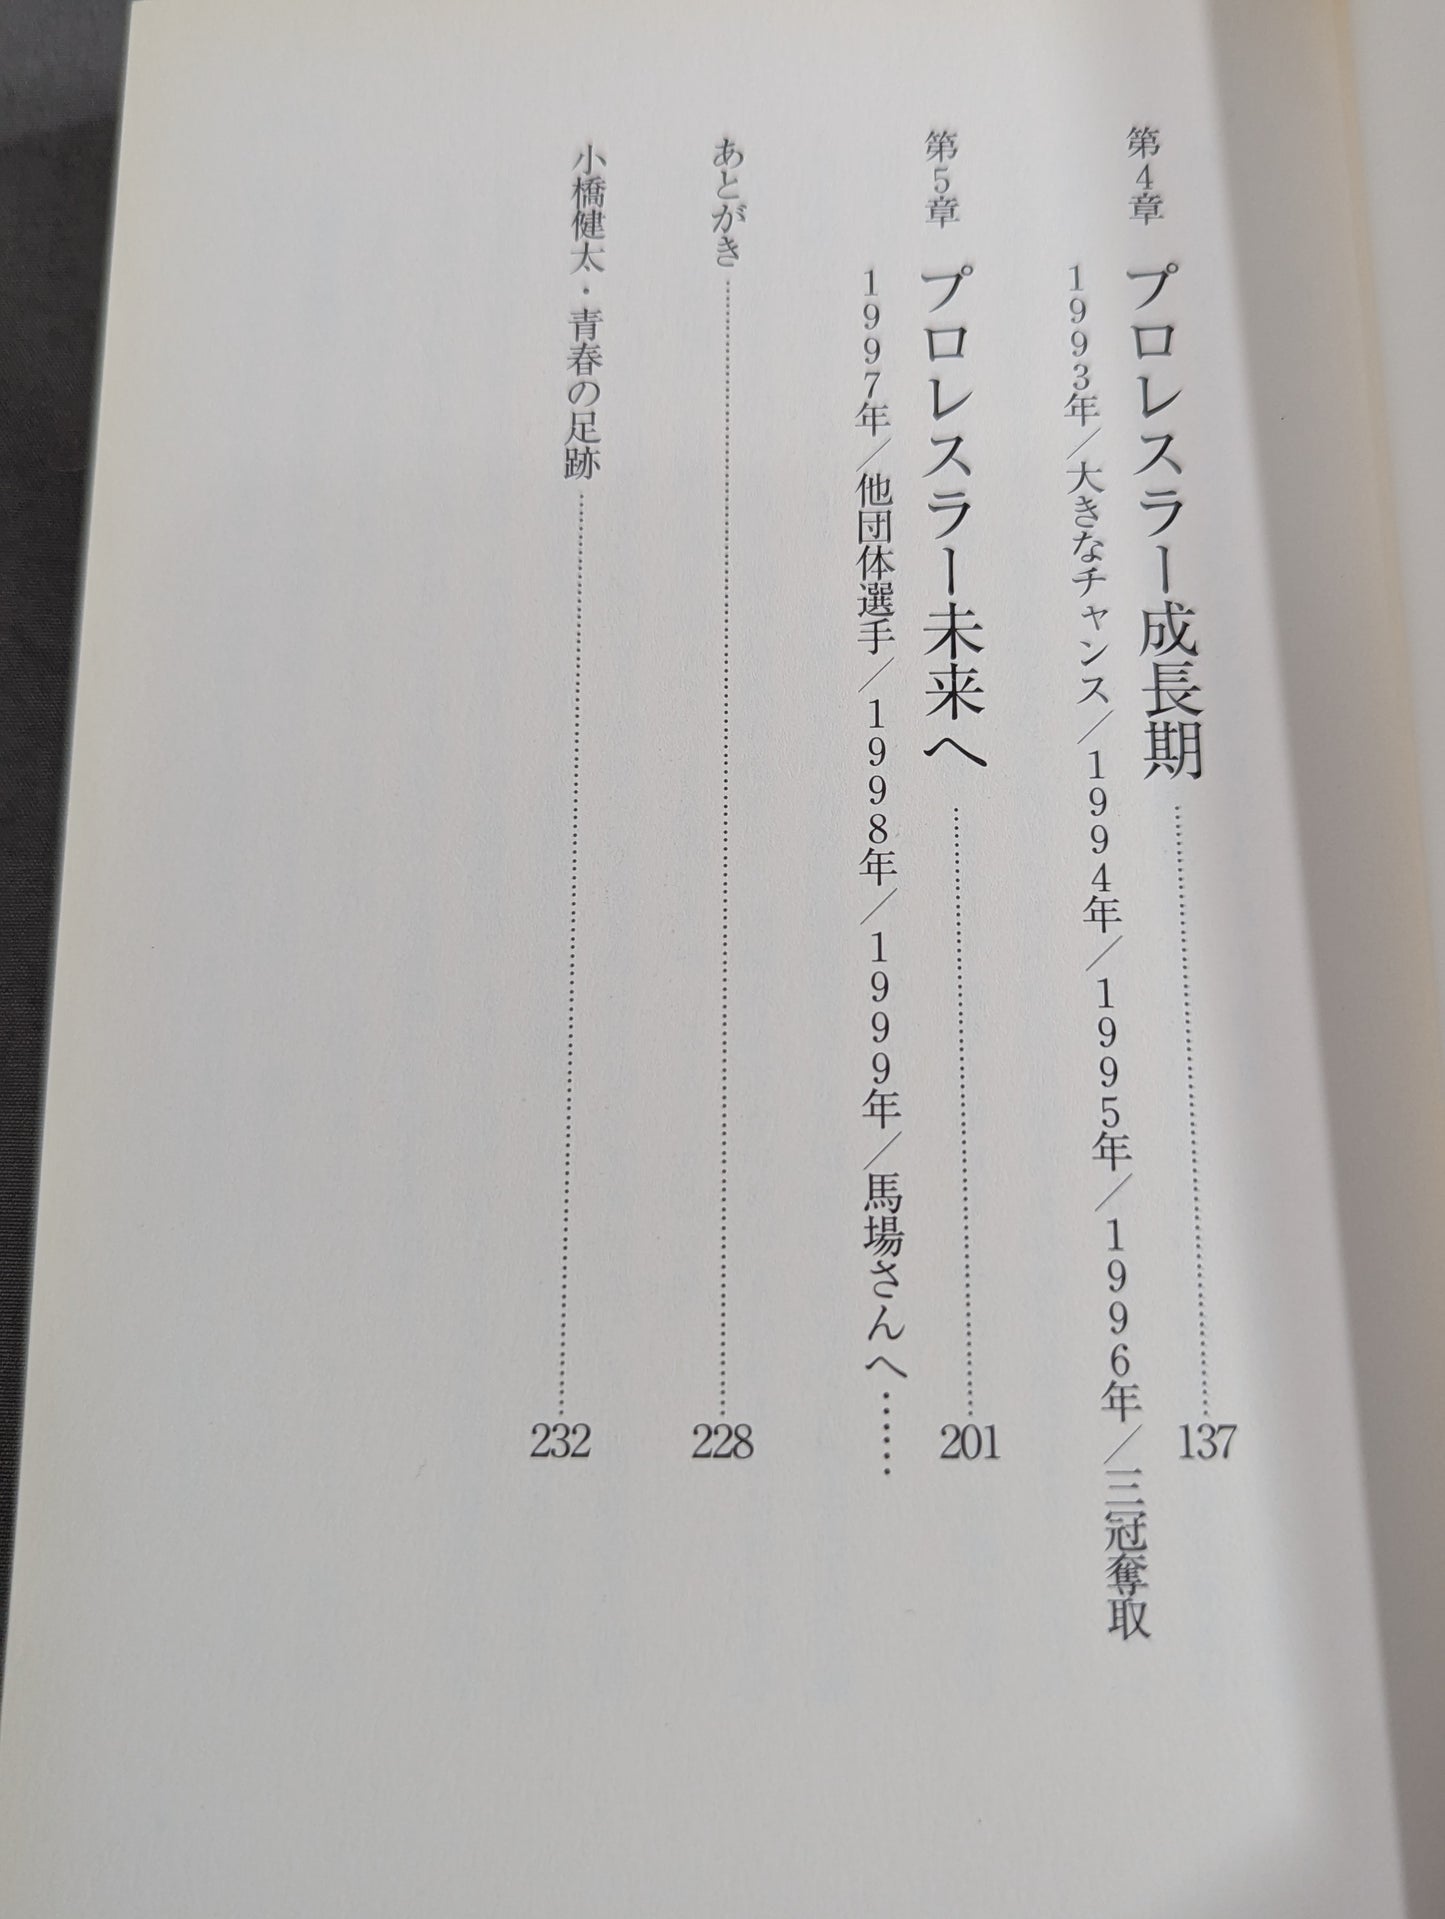 第4章 プロレスラー成長期 137
1993年／大きなチャンス／1994年／1995年／1996年／三冠奪取
第5章 プロレスラー未来へ 201
1997年／他団体選手／1998年／1999年／馬場さんへ……
あとがき 228
小橋健太・青春の足跡 232